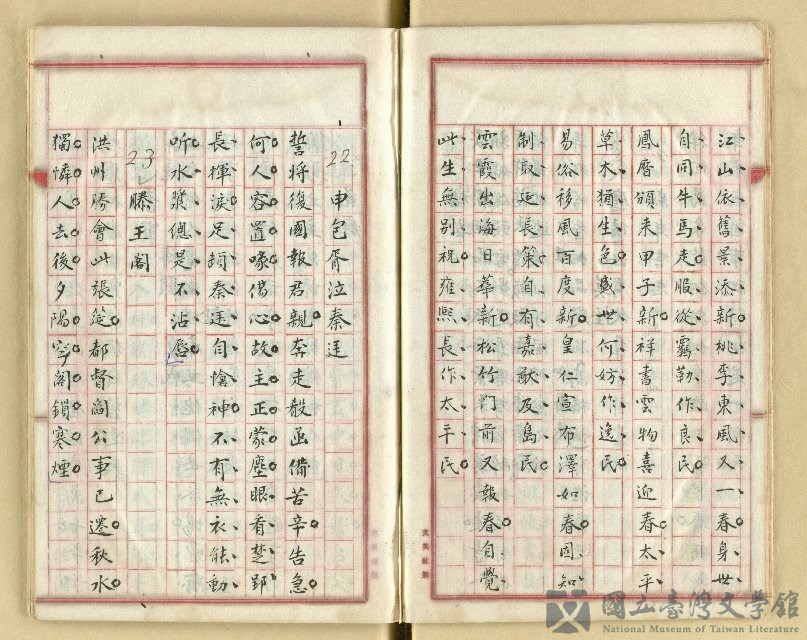 江山依舊景添新桃李東風又一春身世
自同牛馬走服從羈勒作良民
鳳曆頒来甲子新祥書雲物喜迎春太平
草木猶生色盛世何妨作逸民
易俗移風百度新皇仁宣布澤如春固知
制取延長策自有嘉猷及島民
雲霞出海日華新松竹门前又報春自覺
此生無别祝雍熙長作太平民
22 申包胥泣秦廷
誓将復國報君親奔走殽函備苦辛告急
何人容置喙傷心故主正蒙塵眼看楚郢
長揮淚足蹐秦廷自愴神不有無衣能動
听水漿總是不沾唇
23 滕王阁
洪州勝會此張筵都督閻公事已遷秋水
獨憐人去後夕陽空阁鎖寒煙
國立臺灣文學館
National Museum of Taiwan Literature